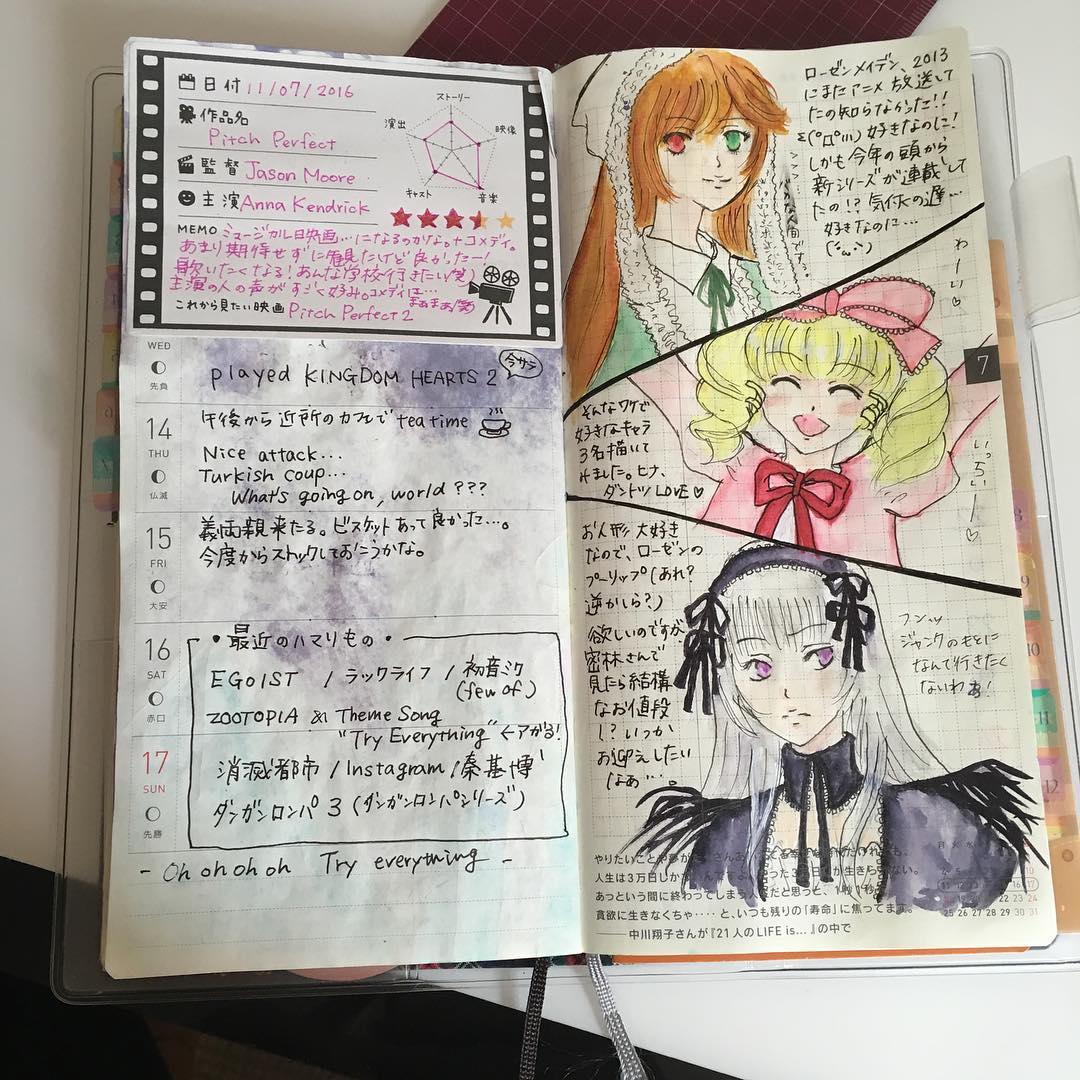 日付 11/07/2016
作品名
Pitch Perfect
監督 Jason Moore
主演 Anna Kendrick
ストーリー
映像
音楽
キャスト
演出
MEMO ミュージカル映画…になるのかな。+コメディ。
あまり期待せずに観たけど良かったー!
歌いたくなる!あんな学校行きたい(笑)
主演の人の声がすごく好み。コメディは…
まぁまぁ(笑)
これから見たい映画 Pitch Perfect 2
WED
先負
played KINGDOM HEARTS 2
今サラ
14
THU
仏滅
午後から近所のカフェで tea time
Nice attack...
Turkish coup...
What's going on, world ???
15
FRI
大安
義両親来たる。ビスケットあって良かった…。
今度からストックしておこうかな。
16
SAT
赤口
• 最近のハマりもの •
EGOIST / ラックライフ / 初音ミク
(few of)
ZOOTOPIA の Theme Song
"Try Everything" ←アガる!
17
SUN
先勝
消滅都市 / Instagram / 秦基博
ダンガンロンパ 3 (ダンガンロンパシリーズ)
- Oh oh oh oh Try everything -
ローゼンメイデン、2013
にまたアニメ放送して
たの知らなかった!!
Σ(ﾟロﾟ;;;) 好きなのに!
しかも今年の頭から
新シリーズが連載して
たの!? 気付くの遅…
好きなのに…
(´・ω・`)
わーい♡
7
そんなワケで
好きなキャラ
3名描いて
みました。ヒナ、
ダントツ LOVE♡
いっちばーん
お人形大好き
なので、ローゼンの
プーリップ(あれ?
逆かしら?)
欲しいのですが
密林さんで
見たら結構
なお値段
!? いつか
お迎えしたい
なぁ…。
フンッ
ジャンクのもとに
なんて行きたく
ないわぁ!
やりたいことや夢が
人生は3万日しか
あっという間に終わってしまう
貪欲に生きなくちゃ‥‥と、いつも残りの「寿命」に焦ってます。
――中川翔子さんが『21人のLIFE is...』の中で
月 火 水
10
17
22 23 24
25 26 27 28 29 30 31
9
10
11
12